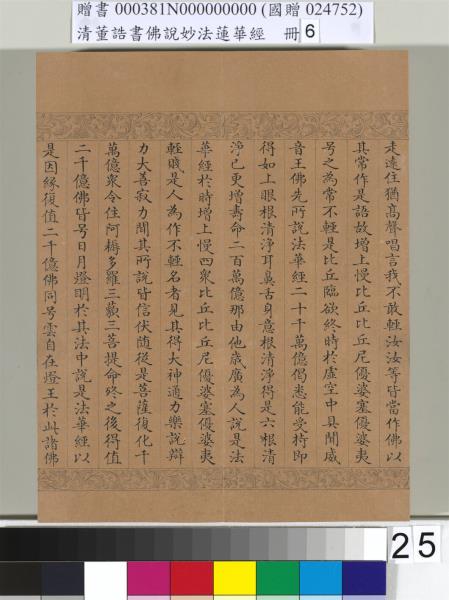 贈書 000381N000000000 (國贈 024752)
清董誥書佛說妙法蓮華經 冊 6
走遠住猶高聲唱言我不敢輕汝汝等皆當作佛以
其常作是語故增上慢比丘比丘尼優婆塞優婆夷
号之為常不輕是比丘臨欲終時於虛空中具聞威
音王佛先所說法華經二十千萬億偈悉能受持即
得如上眼根清淨耳鼻舌身意根清淨得是六根清
淨已更增壽命二百萬億那由他歲廣為人說是法
華經於時增上慢四衆比丘比丘尼優婆塞優婆夷
輕賤是人為作不輕名者見其得大神通力樂說辯
力大善寂力聞其所說皆信伏隨從是菩薩復化千
萬億衆令住阿耨多羅三藐三菩提命終之後得值
二千億佛皆号日月燈明於其法中說是法華經以
是因緣復值二千億佛同号雲自在燈王於此諸佛
25